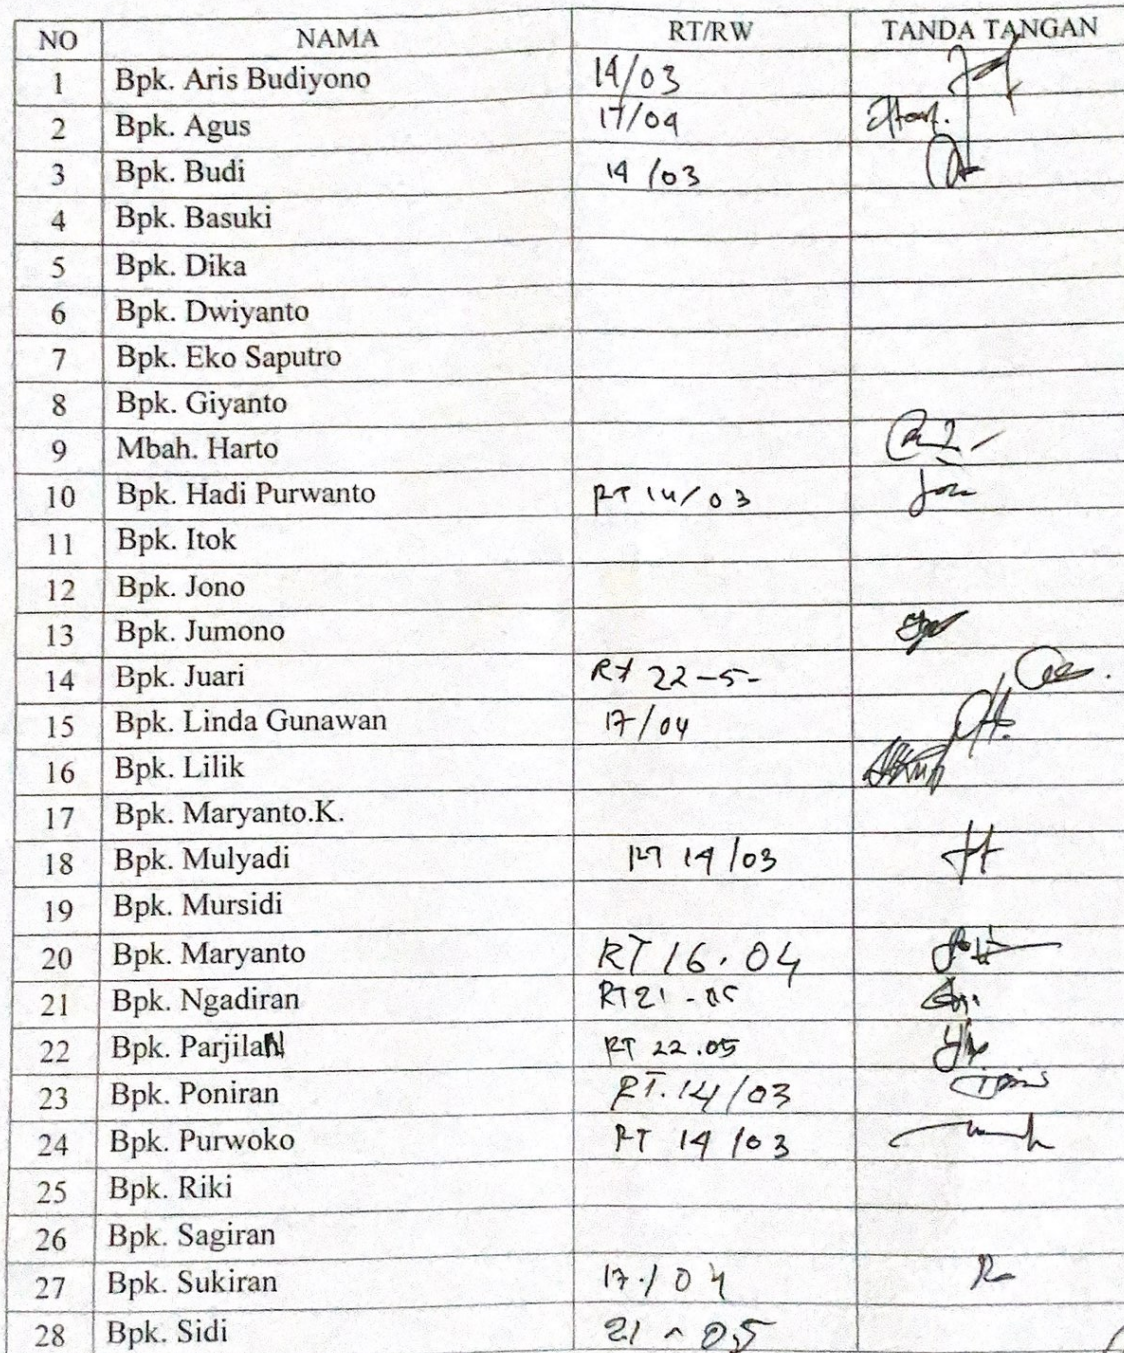 NO NAMA RT/RW TANDA TANGAN
1 Bpk. Aris Budiyono 14/03
2 Bpk. Agus 17/04
3 Bpk. Budi 14/03
4 Bpk. Basuki
5 Bpk. Dika
6 Bpk. Dwiyanto
7 Bpk. Eko Saputro
8 Bpk. Giyanto
9 Mbah. Harto
10 Bpk. Hadi Purwanto RT 14/03
11 Bpk. Itok
12 Bpk. Jono
13 Bpk. Jumono
14 Bpk. Juari RT 22-5-
15 Bpk. Linda Gunawan 17/04
16 Bpk. Lilik
17 Bpk. Maryanto.K.
18 Bpk. Mulyadi RT 14/03
19 Bpk. Mursidi
20 Bpk. Maryanto RT 16.04
21 Bpk. Ngadiran RT 21-05
22 Bpk. ParjilaN RT 22.05
23 Bpk. Poniran RT. 14/03
24 Bpk. Purwoko RT 14/03
25 Bpk. Riki
26 Bpk. Sagiran
27 Bpk. Sukiran 17/04
28 Bpk. Sidi 21-05